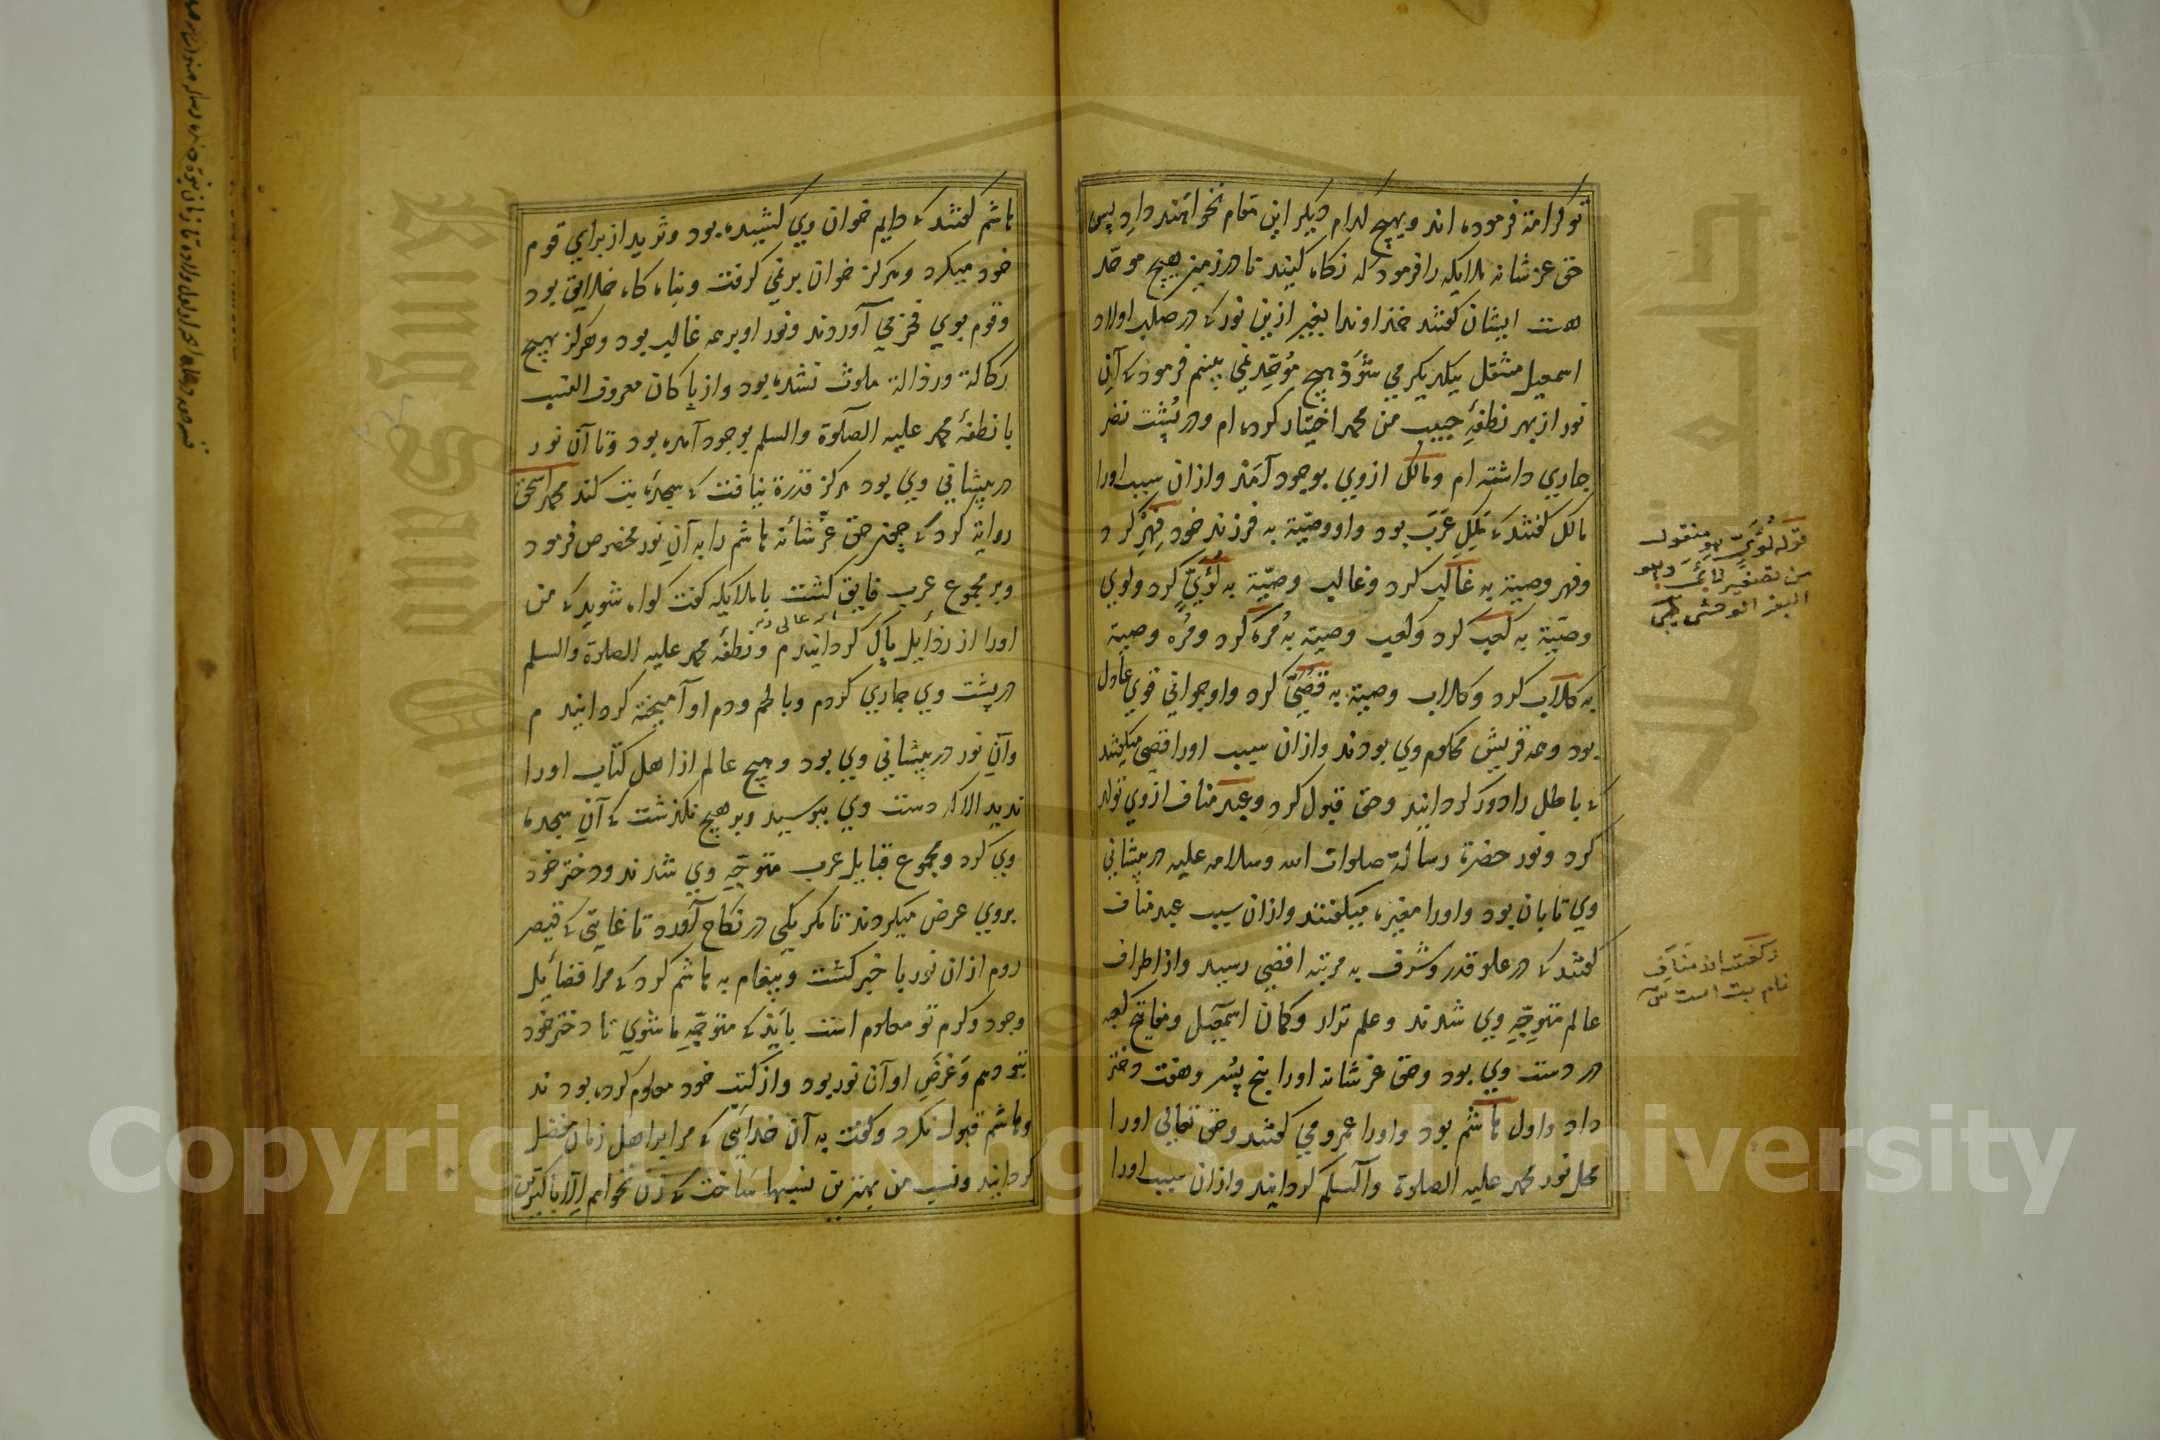 تو کرامة فرموده اند و بهیچ کدام دیکر این مقام نخواهند داد پس
حق عز شانه ملایکه را فرمود که نکاه کنید تا در زمین هیچ موحّد
هست ایشان کفتند خداوندا بغیر ازین نور که در صلب اولاد
اسمعیل منتقل یکدیکر می شود هیچ مُوحِّد نمی بینم فرمود که آن
نور از بهر نطفهٔ حبیب من محمد اختیار کرده ام و در پُشت نضر
جاري داشته ام و مالک ازوي بوجود آمد و ازان سبب اورا
مالک کفتند که مَلِکِ عَرَب بود و او وصیّة به فرزند خود فِهْر کرد
و فهر وصیة به غالب کرد و غالب وصیّة به لُؤَيّ کرد و لوي
وصیّة به کعب کرد و کعب وصیة به مُره کرد و مُره وصیة
به کلاب کرد و کلاب وصیة به قُصَيّ کرد و او جواني قوي عادل
بود و همه قریش محکوم وي بودند و ازان سبب اورا قصي میکفتند
که باطل را دور کردانید و حق قبول کرد و عبد مناف ازوي تولد
کرد و نور حضرة رسالة صلوات الله وسلامه علیه در پیشاني
وي تابان بود و اورا مغیره میکفتند و ازان سبب عبد مناف
کفتند که در علو قدر و شرف به مرتبه اقصي رسید و از اطراف
عالم متوجّه وي شدند و علم نزار و کمان اسمعیل و مفاتح کعبه
در دست وي بود و حق عز شانه اورا پنج پسر و هفت دختر
داد و اول هاشم بود و اورا عمرو مي کفتند و حق تعالي اورا
محل نور محمد علیه الصلوة والسلم کردانید و ازان سبب اورا
قوله لُؤَيّ هو منقول
من تصغیر لأي وهو
الثور الوحشي
که مناف
نام بت است
هاشم کفتند که دایم خوان وي کشیده بود و ثرید از براي قوم
خود میکرد و هرکز خوان برنمي کرفت و پناه کاه خلایق بود
و قوم بوي فخر مي آوردند و نور او بر همه غالب بود و هرکز بهیچ
رکاکة و رذالة ملوث نشده بود و از پاکان معروف النسب
با نطفهٔ محمد علیه الصلوة والسلم بوجود آمده بود و تا آن نور
در پیشاني وي بود هرکز قدرة نیافت که سجدهٔ بت کند محمد اسحق
روایة کرد که چون حق عزّ شأنه هاشم را به آن نور مخصوص فرمود
و بر مجموع عرب فایق کشت با ملایکه کفت کواه شوید که من
اورا از رذأیل پاک کردانیدم و نطفهٔ محمد علیه الصلوة والسلم
در پشت وي جاري کردم و با لحم و دم او آمیخته کردانیدم
و آن نور در پیشاني وي بود و هیچ عالم از اهل کتاب اورا
ندید الا که دست وي ببوسید و بر هیچ نکذشت که آن سجده
وي کرد و مجموع قبایل عرب متوجّه وي شدند و دختر خود
بروي عرض میکردند تا مکر یکي در نکاح آورد تا غایتی که قیصر
روم ازان نور با خبر کشت و پیغام به هاشم کرد که مرا فضأیل
وجود و کرم تو معلوم است باید که متوجّه ما شوي تا دختر خود
بتو دهم و غرض او آن نور بود و از کتب خود معلوم کرده بودند
و هاشم قبول نکرد و کفت به آن خدایي که مرا بر اهل زمان مفضل
کردانید و نسب من بهترین نسبها ساخت که زن نخواهم الا پاکترین
Copyright © King Saud University